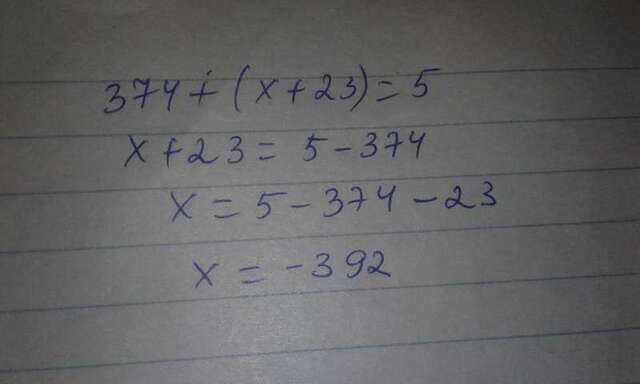 374 + (x + 23) = 5
x + 23 = 5 - 374
x = 5 - 374 - 23
x = -392